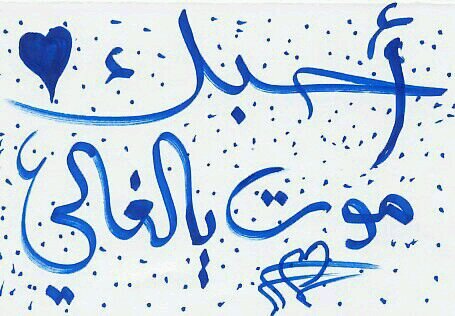 أحبك
موت يالغالي